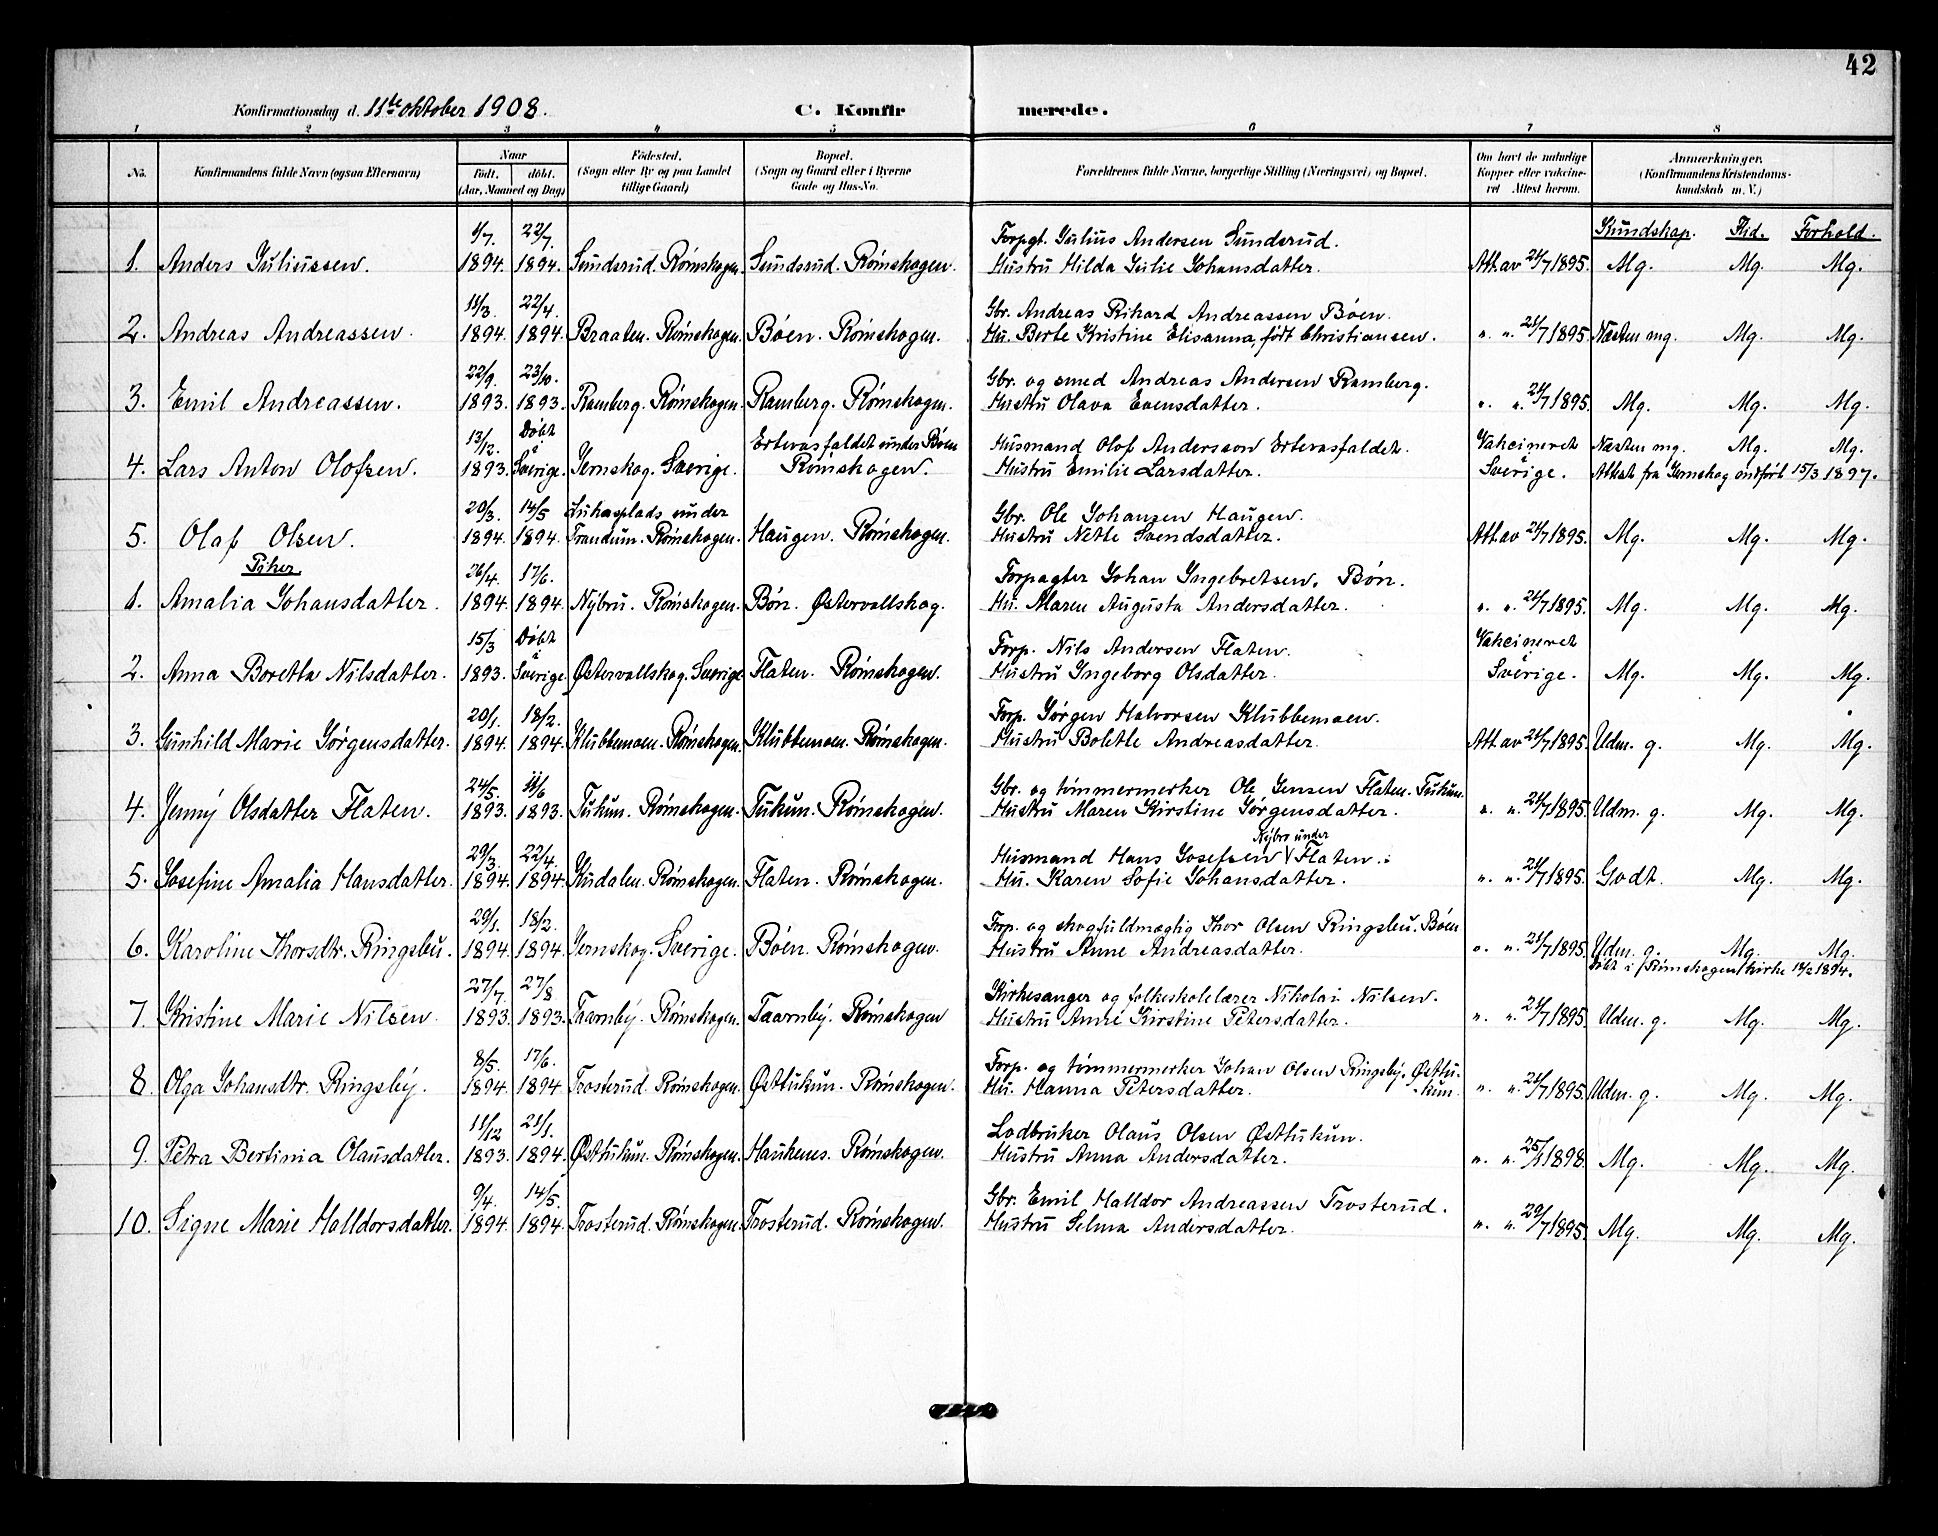 42
Konfirmationsdag d. 11te oktober 1908. C. Konfirmerede.
1 2 3 4 5 6 7 8
No. Konfirmandens fulde Navn (ogsaa Efternavn) Naar Født. døbt. (Aar, Maaned og Dag) Fødested. (Sogn eller By og paa Landet tillige Gaard) Bopæl. (Sogn og Gaard eller i Byerne Gade og Hus-No. Forældrenes fulde Navne, borgerlige Stilling (Næringsvei) og Bopæl. Om havt de naturlige Kopper eller vakcineret Attest herom. Anmærkninger. (Konfirmandens Kristendomskundskab m. V.)
Kundskap. Flid. Forhold.
9/7. 22/7. Forpgt. Julius Andersen Sundsrud.
1. Anders Juliussen. 1894. 1894. Sundsrud. Rømskogen. Sundsrud. Rømskogen. Hustru Hilda Julie Johansdatter. Att. av 24/7 1895. Mg. Mg. Mg.
11/3. 22/4. Gbr. Andreas Rikard Andreassen Bøen.
2. Andreas Andreassen. 1894. 1894. Braaten. Rømskogen. Bøen. Rømskogen. Hu. Berte Kristine Elisanna, født Christiansen. " " 24/7 1895. Næsten mg. Mg. Mg.
22/9. 23/10. Gbr. og smed Andreas Andersen Ramberg.
3. Emil Andreassen. 1893. 1893. Ramberg. Rømskogen. Ramberg. Rømskogen. Hustru Olava Evensdatter. " " 24/7 1895. Mg. Mg. Mg.
13/12. Døbt i Ertevasfaldet under Bøen Husmand Olof Andersson Ertevasfaldet. Vakcineret Næsten mg. Mg. Mg.
4. Lars Anton Olofsen. 1893. Sverige. Jernskog. Sverige. Rømskogen. Hustru Emilie Larsdatter. i Sverige. Attest fra Jernskog indført 15/3 1897.
20/3. 14/5 under Gbr. Ole Johansen Haugen.
5. Olaf Olsen. 1894. 1894. Trandum. Rømskogen. Haugen. Rømskogen. Hustru Nette Svendsdatter. Att. av 24/7 1895. Mg. Mg. Mg.
Piker.
26/4. 17/6. Forpagter Johan Ingebretsen. Bøn.
1. Amalia Johansdatter. 1894. 1894. Nybru. Rømskogen. Bøn. Østervallskog. Hu. Maren Augusta Andersdatter. " " 24/7 1895. Mg. Mg. Mg.
15/3 Døbt i Forp. Nils Andersen Flaten. Vakcineret
2. Anna Boretta Nilsdatter. 1893. Sverige Østervallskog. Sverige Flaten. Rømskogen. Hustru Ingeborg Olsdatter. i Sverige. Mg. Mg. Mg.
20/1. 18/2. Forp. Jørgen Halvorsen Klubbemoen.
3. Gunhild Marie Jørgensdatter. 1894. 1894. Klubbemoen. Rømskogen. Klubbemoen. Rømskogen. Hustru Bolette Andreasdatter. Att. av 24/7 1895. Udm. g. Mg. Mg.
24/5. 11/6 Gbr. og tømmermerker Ole Jensen Flaten. Tukun.
4. Jenny Olsdatter Flaten. 1893. 1893. Tukun. Rømskogen. Tukun. Rømskogen. Hustru Maren Kirstine Jørgensdatter. " " 24/7 1895. Udm. g. Mg. Mg.
29/3. 22/4. Husmand Hans Josefsen Nybro under Flaten.
5. Josefine Amalia Hansdatter. 1894. 1894. Kudalen. Rømskogen. Flaten. Rømskogen. Hu. Karen Sofie Johansdatter. " " 24/7 1895. Godt. Mg. Mg.
29/1. 18/2. Forp. og skogfuldmægtig Thor Olsen Ringsbu. Bøen
6. Karoline Thorsdtr. Ringsbu. 1894 1894 Jernskog. Sverige. Bøen. Rømskogen. Hustru Anne Andreasdatter. " " 24/7 1895. Udm. g. Mg. Mg.
Døbt i Rømskogen kirke 18/2 1894.
27/7. 27/8 Kirkesanger og folkeskolelærer Nikolai Nilsen.
7. Kristine Marie Nilsen. 1893. 1893. Taarnby. Rømskogen. Taarnby. Rømskogen Hustru Anne Kirstine Petersdatter. " " 24/7 1895. Udm. g. Mg. Mg.
8/5. 17/6. Forp. og tømmermerker Johan Olsen Ringsby. Østtu-
8. Olga Johansdtr. Ringsby. 1894. 1894 Trosterud. Rømskogen. Østtukun. Rømskogen. Hu. Hanna Petersdatter. -kun. " " 24/7 1895. Udm. g. Mg. Mg.
11/12 21/1. Lodbruker Olaus Olsen Østtukun.
9. Petra Bertinia Olausdatter. 1893. 1894. Østtukun. Rømskogen. Haukenes. Rømskogen. Hustru Anna Andersdatter. " " 1898. Mg. Mg. Mg.
9/4. 14/5. Gbr. Emil Halldor Andreassen Trosterud.
10. Signe Marie Halldorsdatter. 1894. 1894. Trosterud. Rømskogen. Trosterud. Rømskogen. Hustru Selma Andersdatter. " " 29/7 1895. Mg. Mg. Mg.